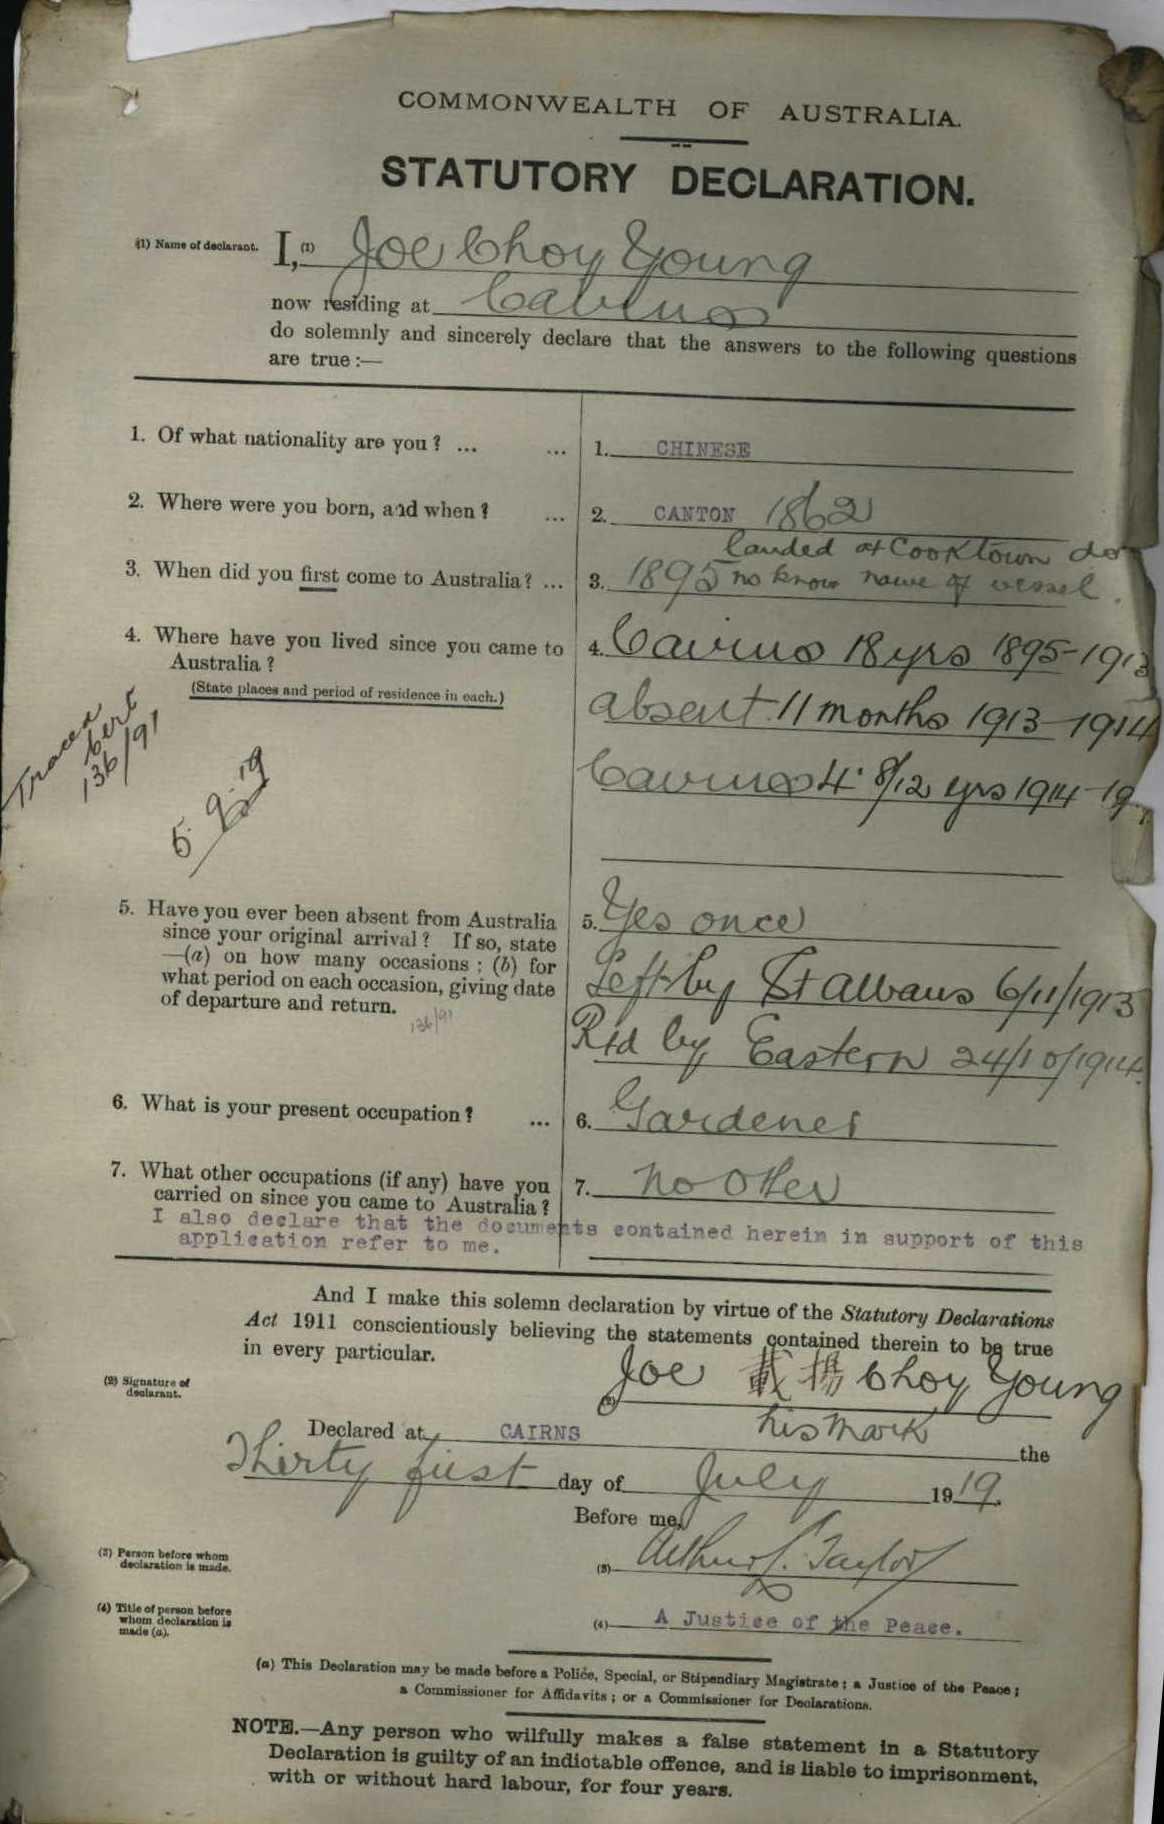 COMMONWEALTH OF AUSTRALIA.
STATUTORY DECLARATION.
(1) Name of declarant. I, (1) Joe Choy Young
now residing at Cairns
do solemnly and sincerely declare that the answers to the following questions
are true :—
1. Of what nationality are you ? ... ... 1. CHINESE
2. Where were you born, and when ? ... 2. CANTON 1862
landed at Cooktown do
3. When did you first come to Australia? ... 3. 1895 no know name of vessel.
4. Where have you lived since you came to 4. Cairns 18 yrs 1895-1913
Australia ?
(State places and period of residence in each.)
absent 11 months 1913-1914
Traced
136/91
Cairns 4 8/12 yrs 1914-19
5.9.19
5. Have you ever been absent from Australia 5. Yes once
since your original arrival? If so, state
—(a) on how many occasions ; (b) for
what period on each occasion, giving date Left by St Albans 6/11/1913
of departure and return.
136/91
Rtd by Eastern 24/10/1914
6. What is your present occupation ? ... 6. Gardener
7. What other occupations (if any) have you 7. no other
carried on since you came to Australia ?
I also declare that the documents contained herein in support of this
application refer to me.
And I make this solemn declaration by virtue of the Statutory Declarations
Act 1911 conscientiously believing the statements contained therein to be true
in every particular.
(2) Signature of declarant. (2) Joe 載揚 Choy Young
his mark
Declared at CAIRNS the
Thirty first day of July 1919.
Before me,
(3) Person before whom
declaration is made. (3) Arthur Taylor
(4) Title of person before
whom declaration is
made (a). (4) A Justice of the Peace.
(a) This Declaration may be made before a Police, Special, or Stipendiary Magistrate ; a Justice of the Peace ;
a Commissioner for Affidavits ; or a Commissioner for Declarations.
NOTE.—Any person who wilfully makes a false statement in a Statutory
Declaration is guilty of an indictable offence, and is liable to imprisonment,
with or without hard labour, for four years.